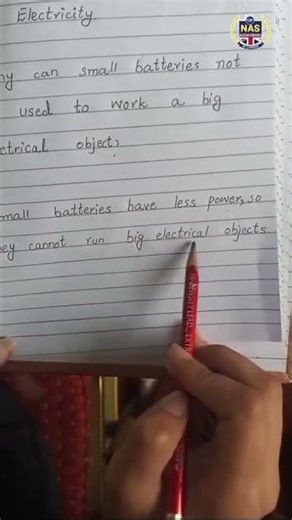 NAS
Electricity
can small batteries not
used to work a big
object?
batteries have less power, so
cannot run big electrical objects